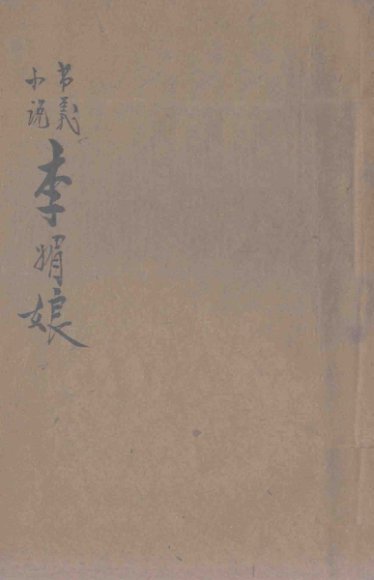 节義
小説
李娟娘